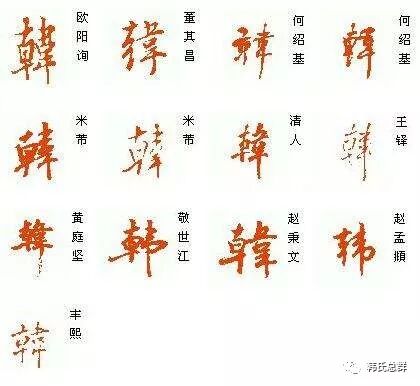 韓
欧阳询
韓
董其昌
韓
何绍基
韓
何绍基
韓
米芾
韓
米芾
韓
清人
韓
王铎
韓
黄庭坚
韩
敬世江
韓
赵秉文
韩
赵孟頫
韓
丰熙
韩氏总群